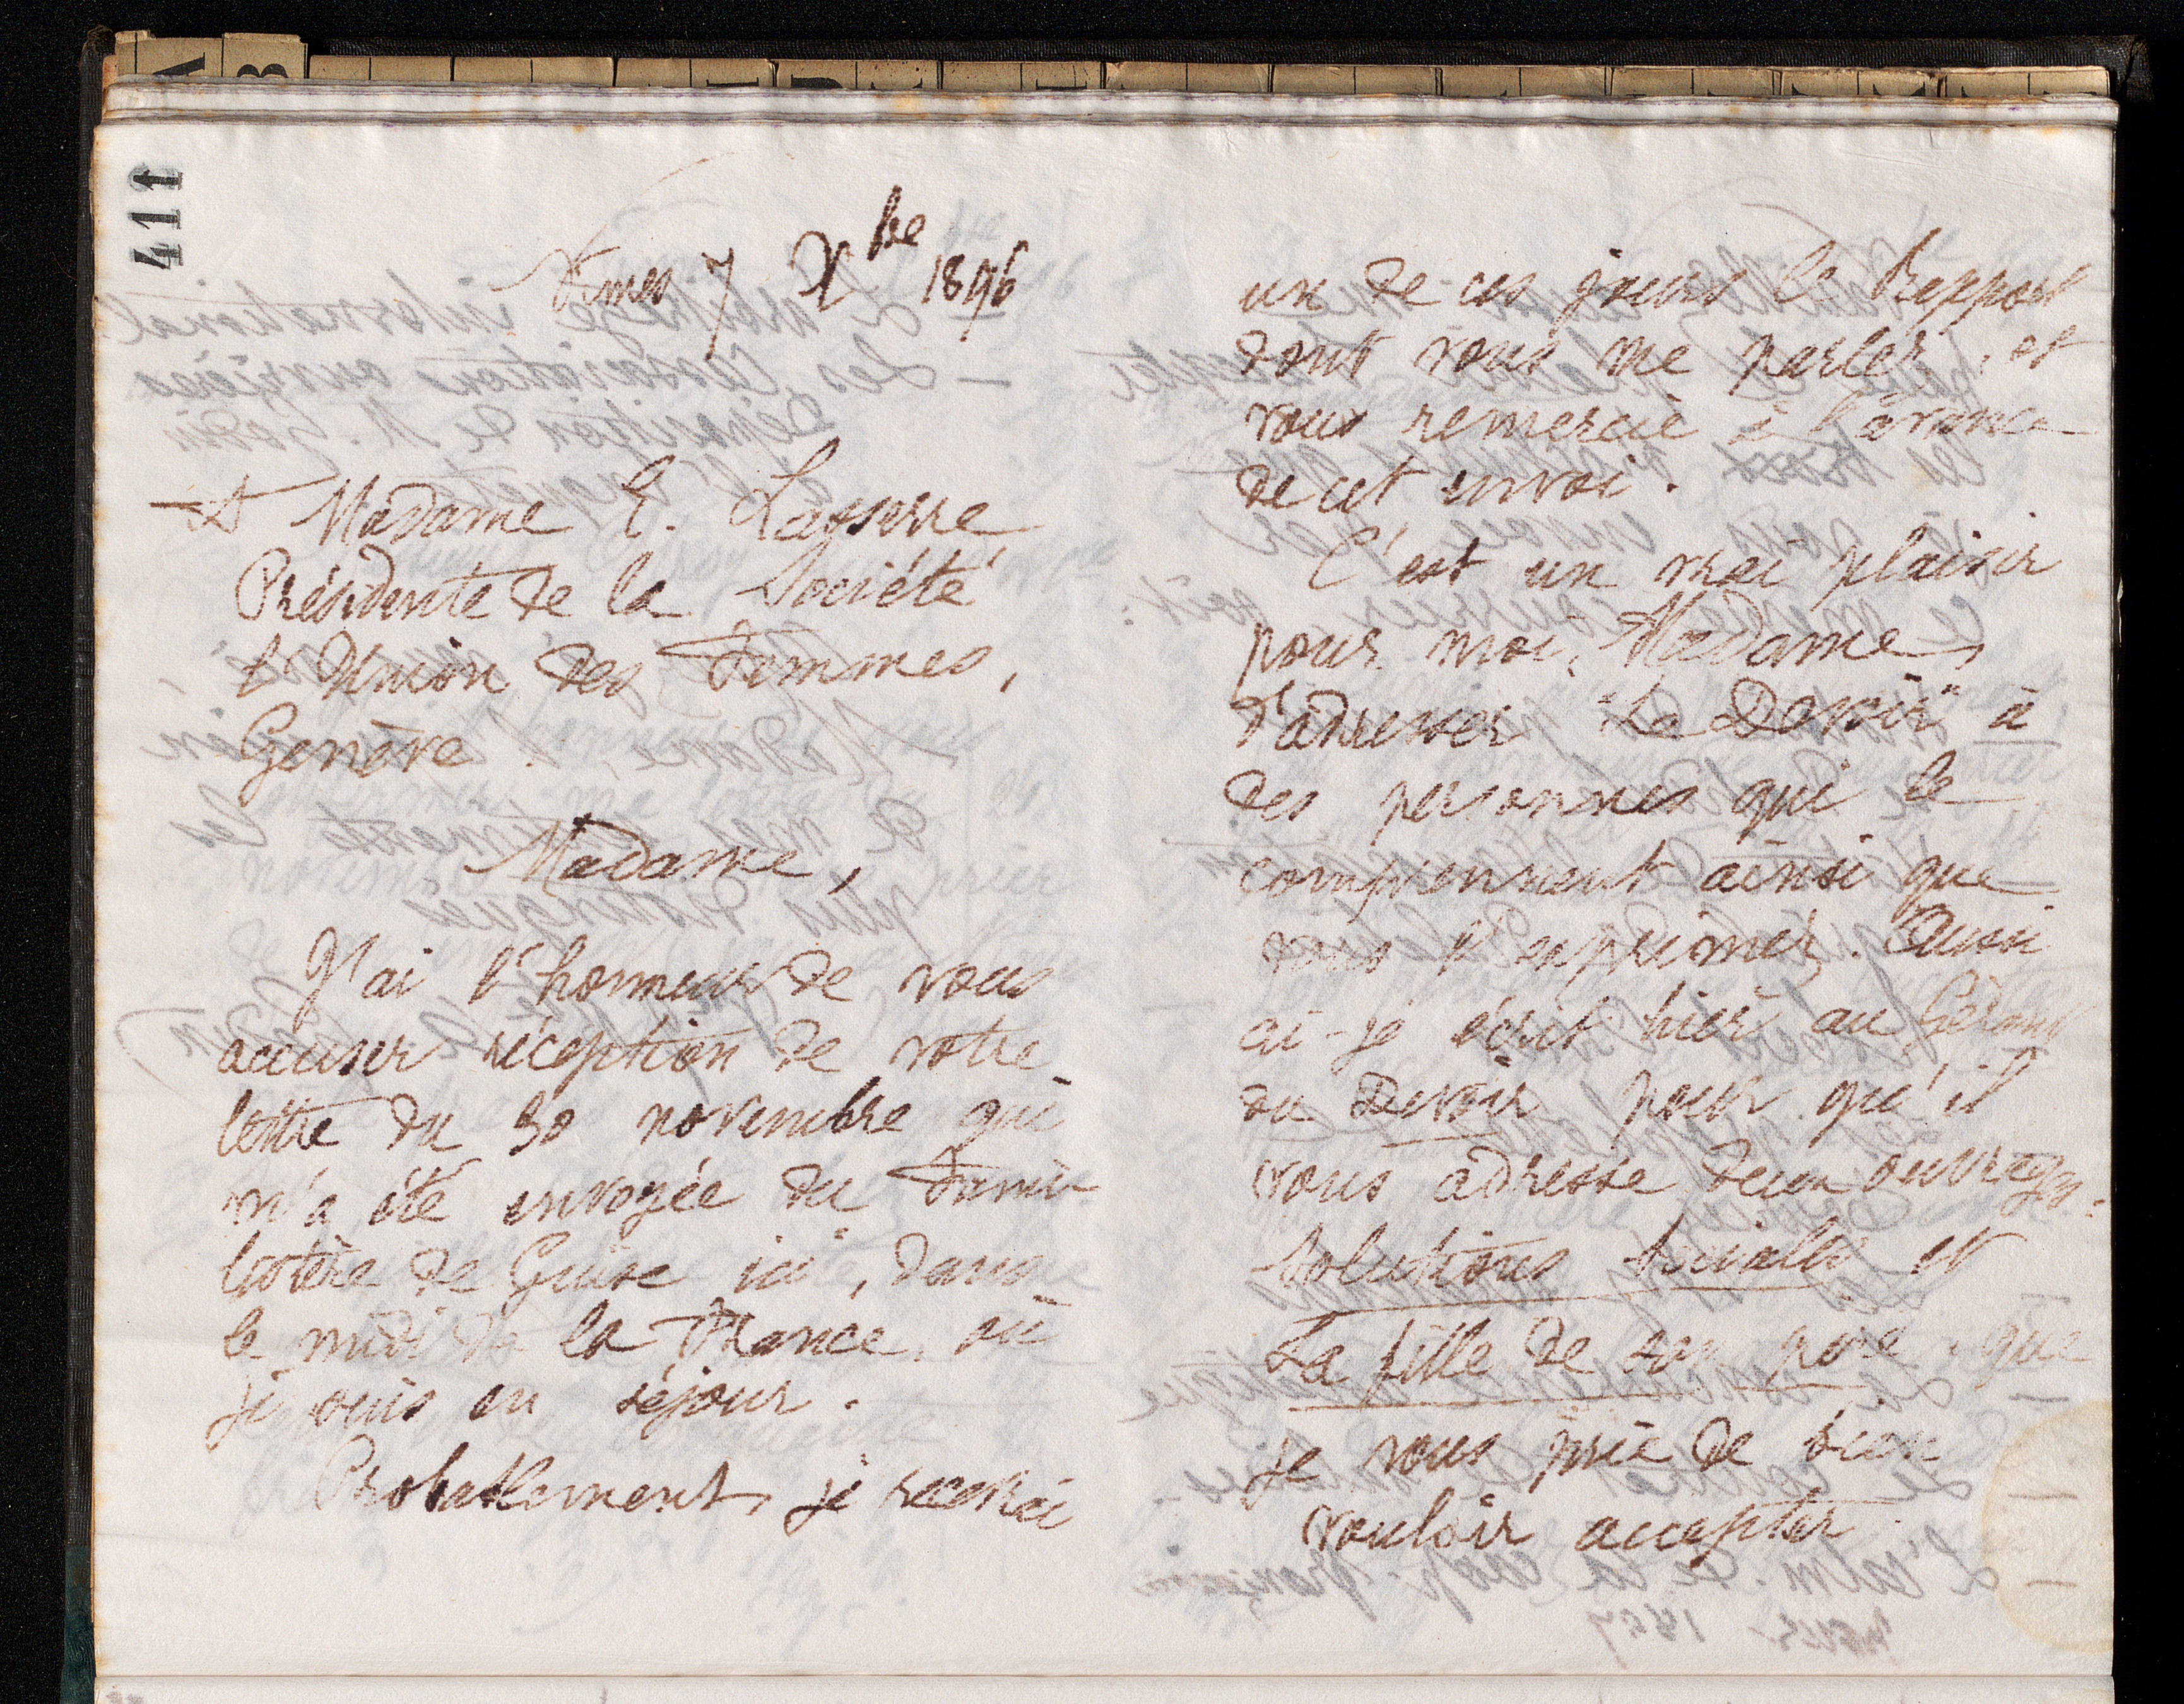 411
Nîmes 7 Xbre 1896
A Madame E. Lasserre
Présidente de la Société
l'Union des Femmes,
Genève.
Madame,
J'ai l'honneur de vous
accuser réception de votre
lettre du 30 novembre qui
m'a été envoyée du Fami-
listère de Guise ici, dans
le midi de la France où
je suis en séjour.
Probablement, je recevrai
un de ces jours le Rapport
dont vous me parlez, et
vous remercie à l'avance
de cet envoi.
C'est un vrai plaisir
pour moi, Madame,
d'adresser "Le Devoir" à
des personnes qui le
comprennent ainsi que
vous l'exprimez. Aussi
ai-je écrit hier au Gérant
du Devoir pour qu'il
vous adresse deux ouvrages:
Solutions sociales et
La fille de son père, que
je vous prie de bien
vouloir accepter.